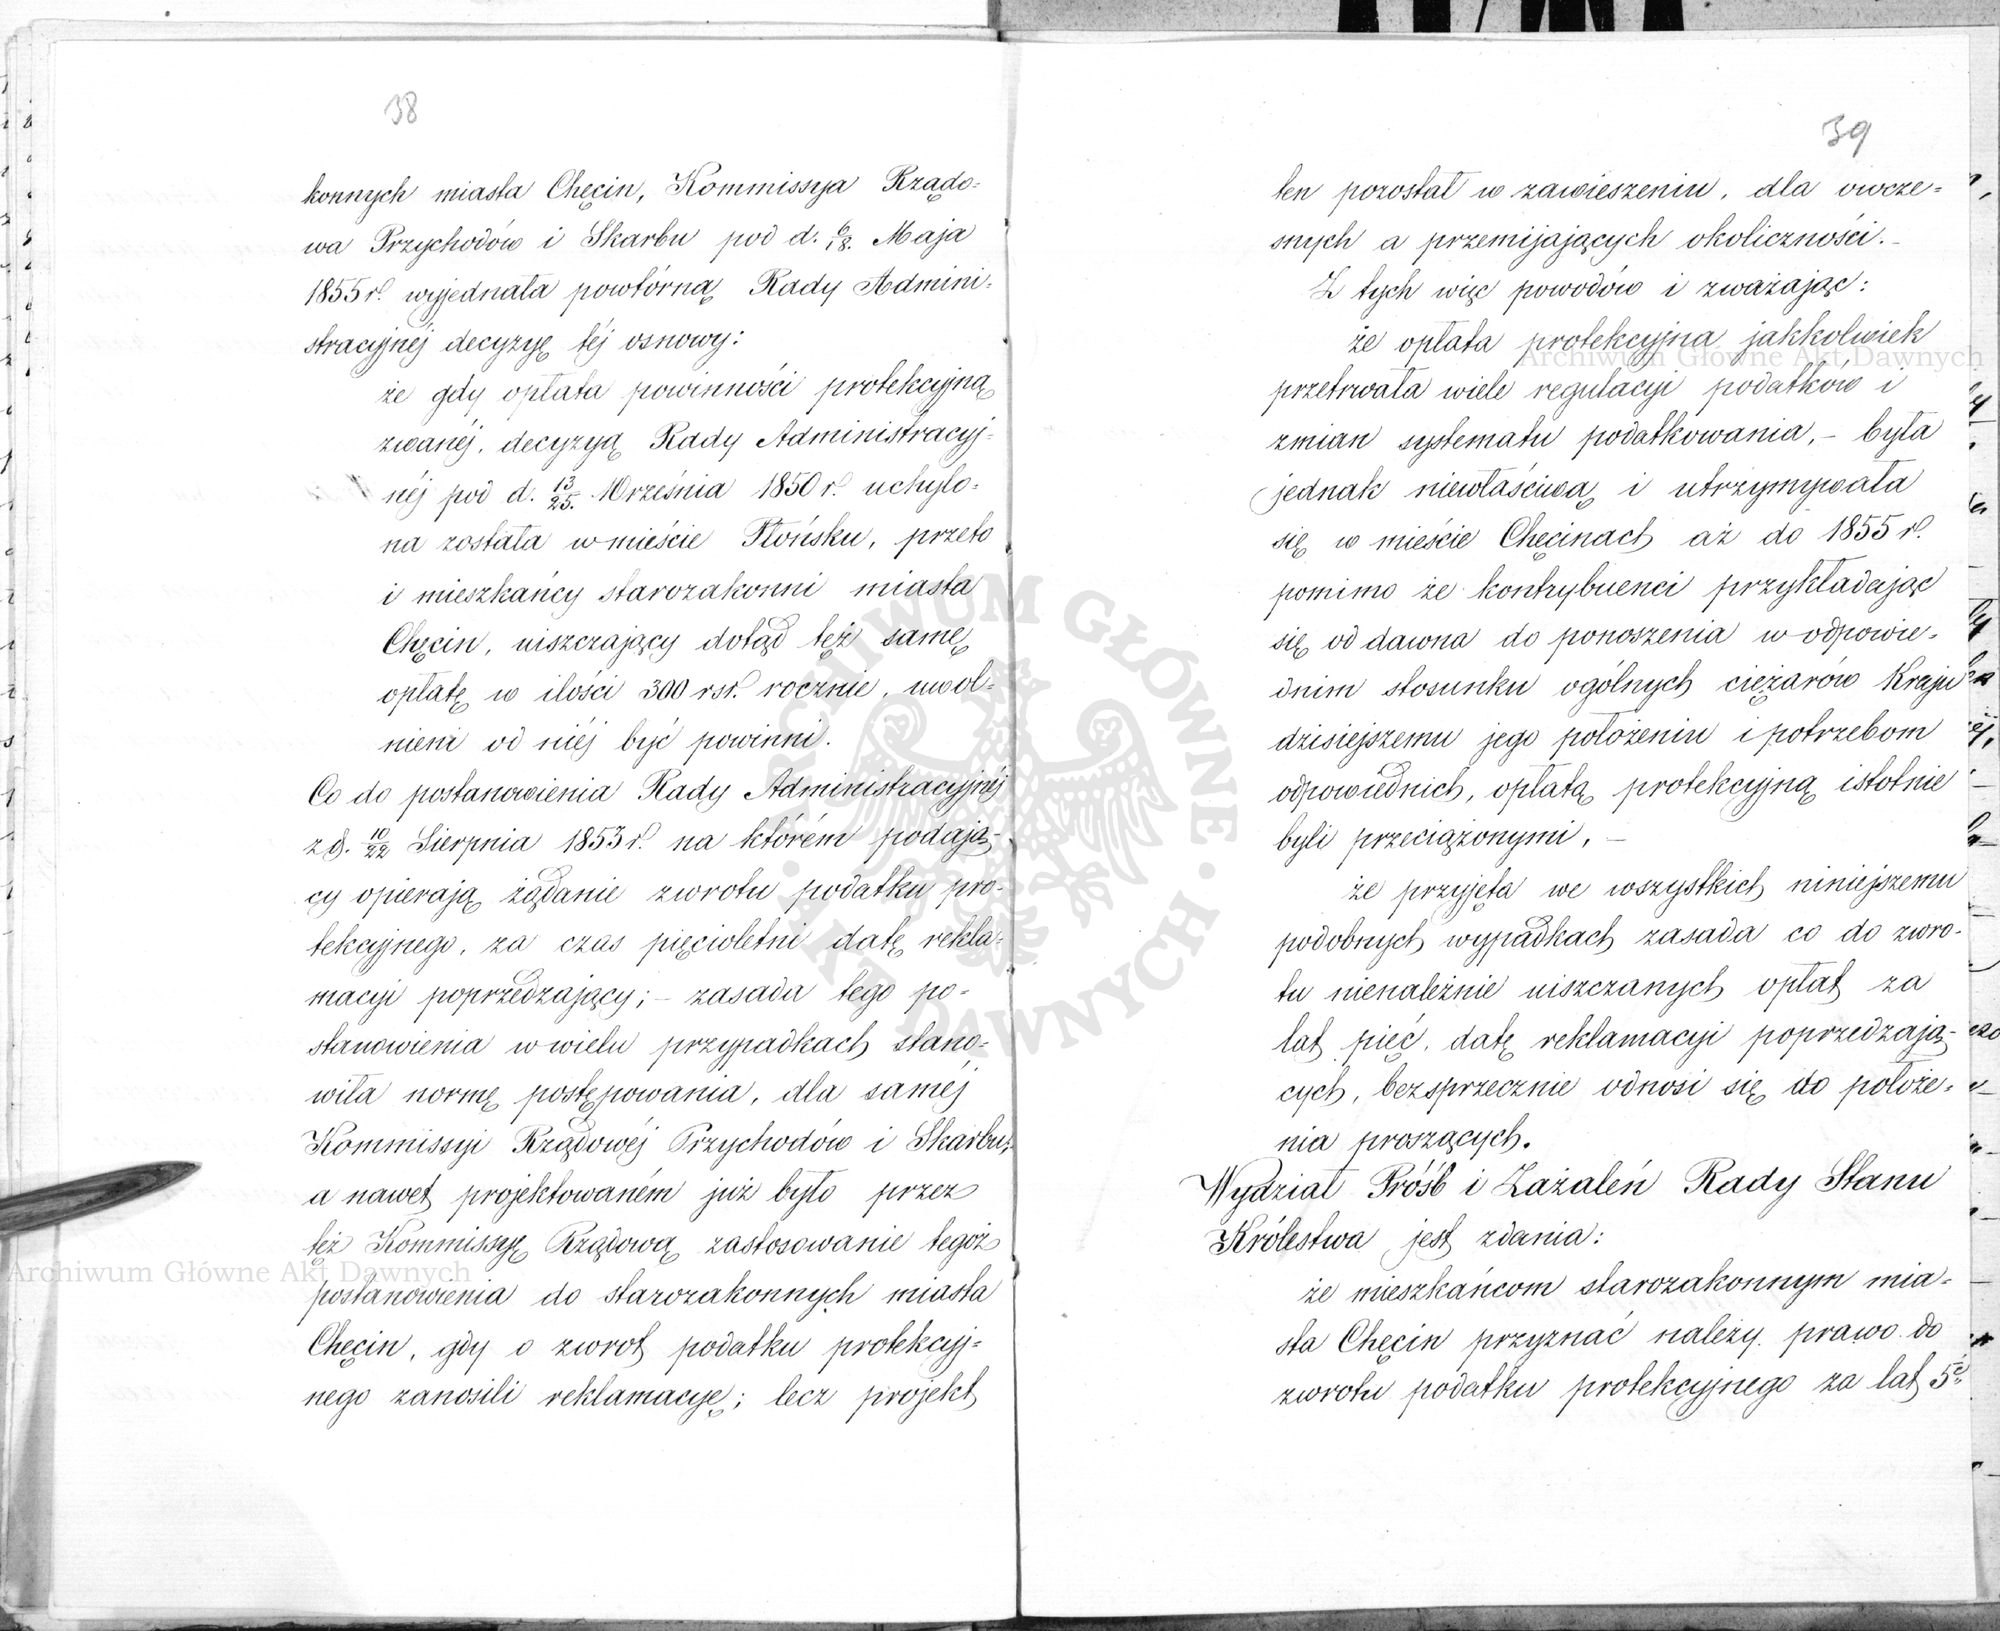 38
konnych miasta Chęcin, Kommissya Rządo-
wa Przychodów i Skarbu pod d. 6/18. Maja
1855 r. wyjednała powtórną Rady Admini-
stracyjnéj decyzyę téj osnowy:
że gdy opłata powinności protekcyjną
zwanéj, decyzyą Rady Administracyj-
néj pod d. 13/25. Września 1850 r. uchylo-
na została w mieście Płońsku, przeto
i mieszkańcy starozakonni miasta
Chęcin, uiszczający dotąd też samę
opłatę w ilości 300 rsr. rocznie, uwol-
nieni od niéj być powinni.
Co do postanowienia Rady Administracyjnéj
z d. 10/22 Sierpnia 1853 r. na którém podają-
cy opierają żądanie zwrotu podatku pro-
tekcyjnego, za czas pięcioletni datę rekla-
macyi poprzedzający; – zasada tego po-
stanowienia w wielu przypadkach stano-
wiła normę postępowania, dla saméj
Kommissyi Rządowéj Przychodów i Skarbu,
a nawet projektowaném już było przez
też Kommissyę Rządową zastosowanie tegoż
postanowienia do starozakonnych miasta
Chęcin, gdy o zwrot podatku protekcyj-
nego zanosili reklamacyę; lecz projekt
39
ten pozostał w zawieszeniu, dla owcze-
snych a przemijających okoliczności. –
Z tych więc powodów i zważając:
że opłata protekcyjna jakkolwiek
przetrwała wiele regulacyi podatków i
zmian systematu podatkowania, – była
jednak niewłaściwą i utrzymywała
się w mieście Chęcinach aż do 1855 r.
pomimo że kontrybuenci przykładając
się od dawna do ponoszenia w odpowie-
dnim stosunku ogólnych ciężarów Kraju
dzisiejszemu jego położeniu i potrzebom
odpowiednich, opłatą protekcyjną istotnie
byli przeciążonymi, –
że przyjęta we wszystkich niniejszemu
podobnych wypadkach zasada co do zwro-
tu nienależnie uiszczanych opłat za
lat pięć, datę reklamacyi poprzedzają-
cych, bezsprzecznie odnosi się do położe-
nia proszących.
Wydział Próśb i Zażaleń Rady Stanu
Królestwa jest zdania:
że mieszkańcom starozakonnym mia-
sta Chęcin przyznać należy prawo do
zwrotu podatku protekcyjnego za lat 5ć
Archiwum Główne Akt Dawnych
Archiwum Główne Akt Dawnych
ARCHIWUM GŁÓWNE · AKT DAWNYCH ·